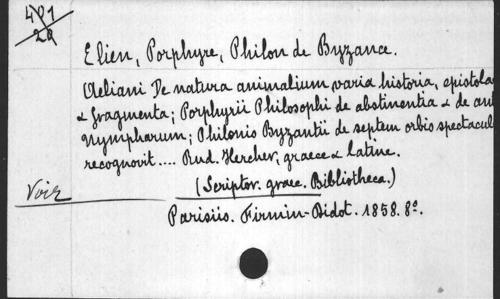 491
20
Elien, Porphyre, Philon de Byzance.
Aeliani De natura animalium, varia historia, epistolae
& fragmenta; Porphyrii Philosophi de abstinentia & de an
nympharum; Philonis Byzantii de septem orbis spectacul
recognovit .... Rud. Hercher, graece & latine.
Voir
(Scriptor. graec. Bibliotheca.)
Parisiis. Firmin-Didot. 1858. 8º.